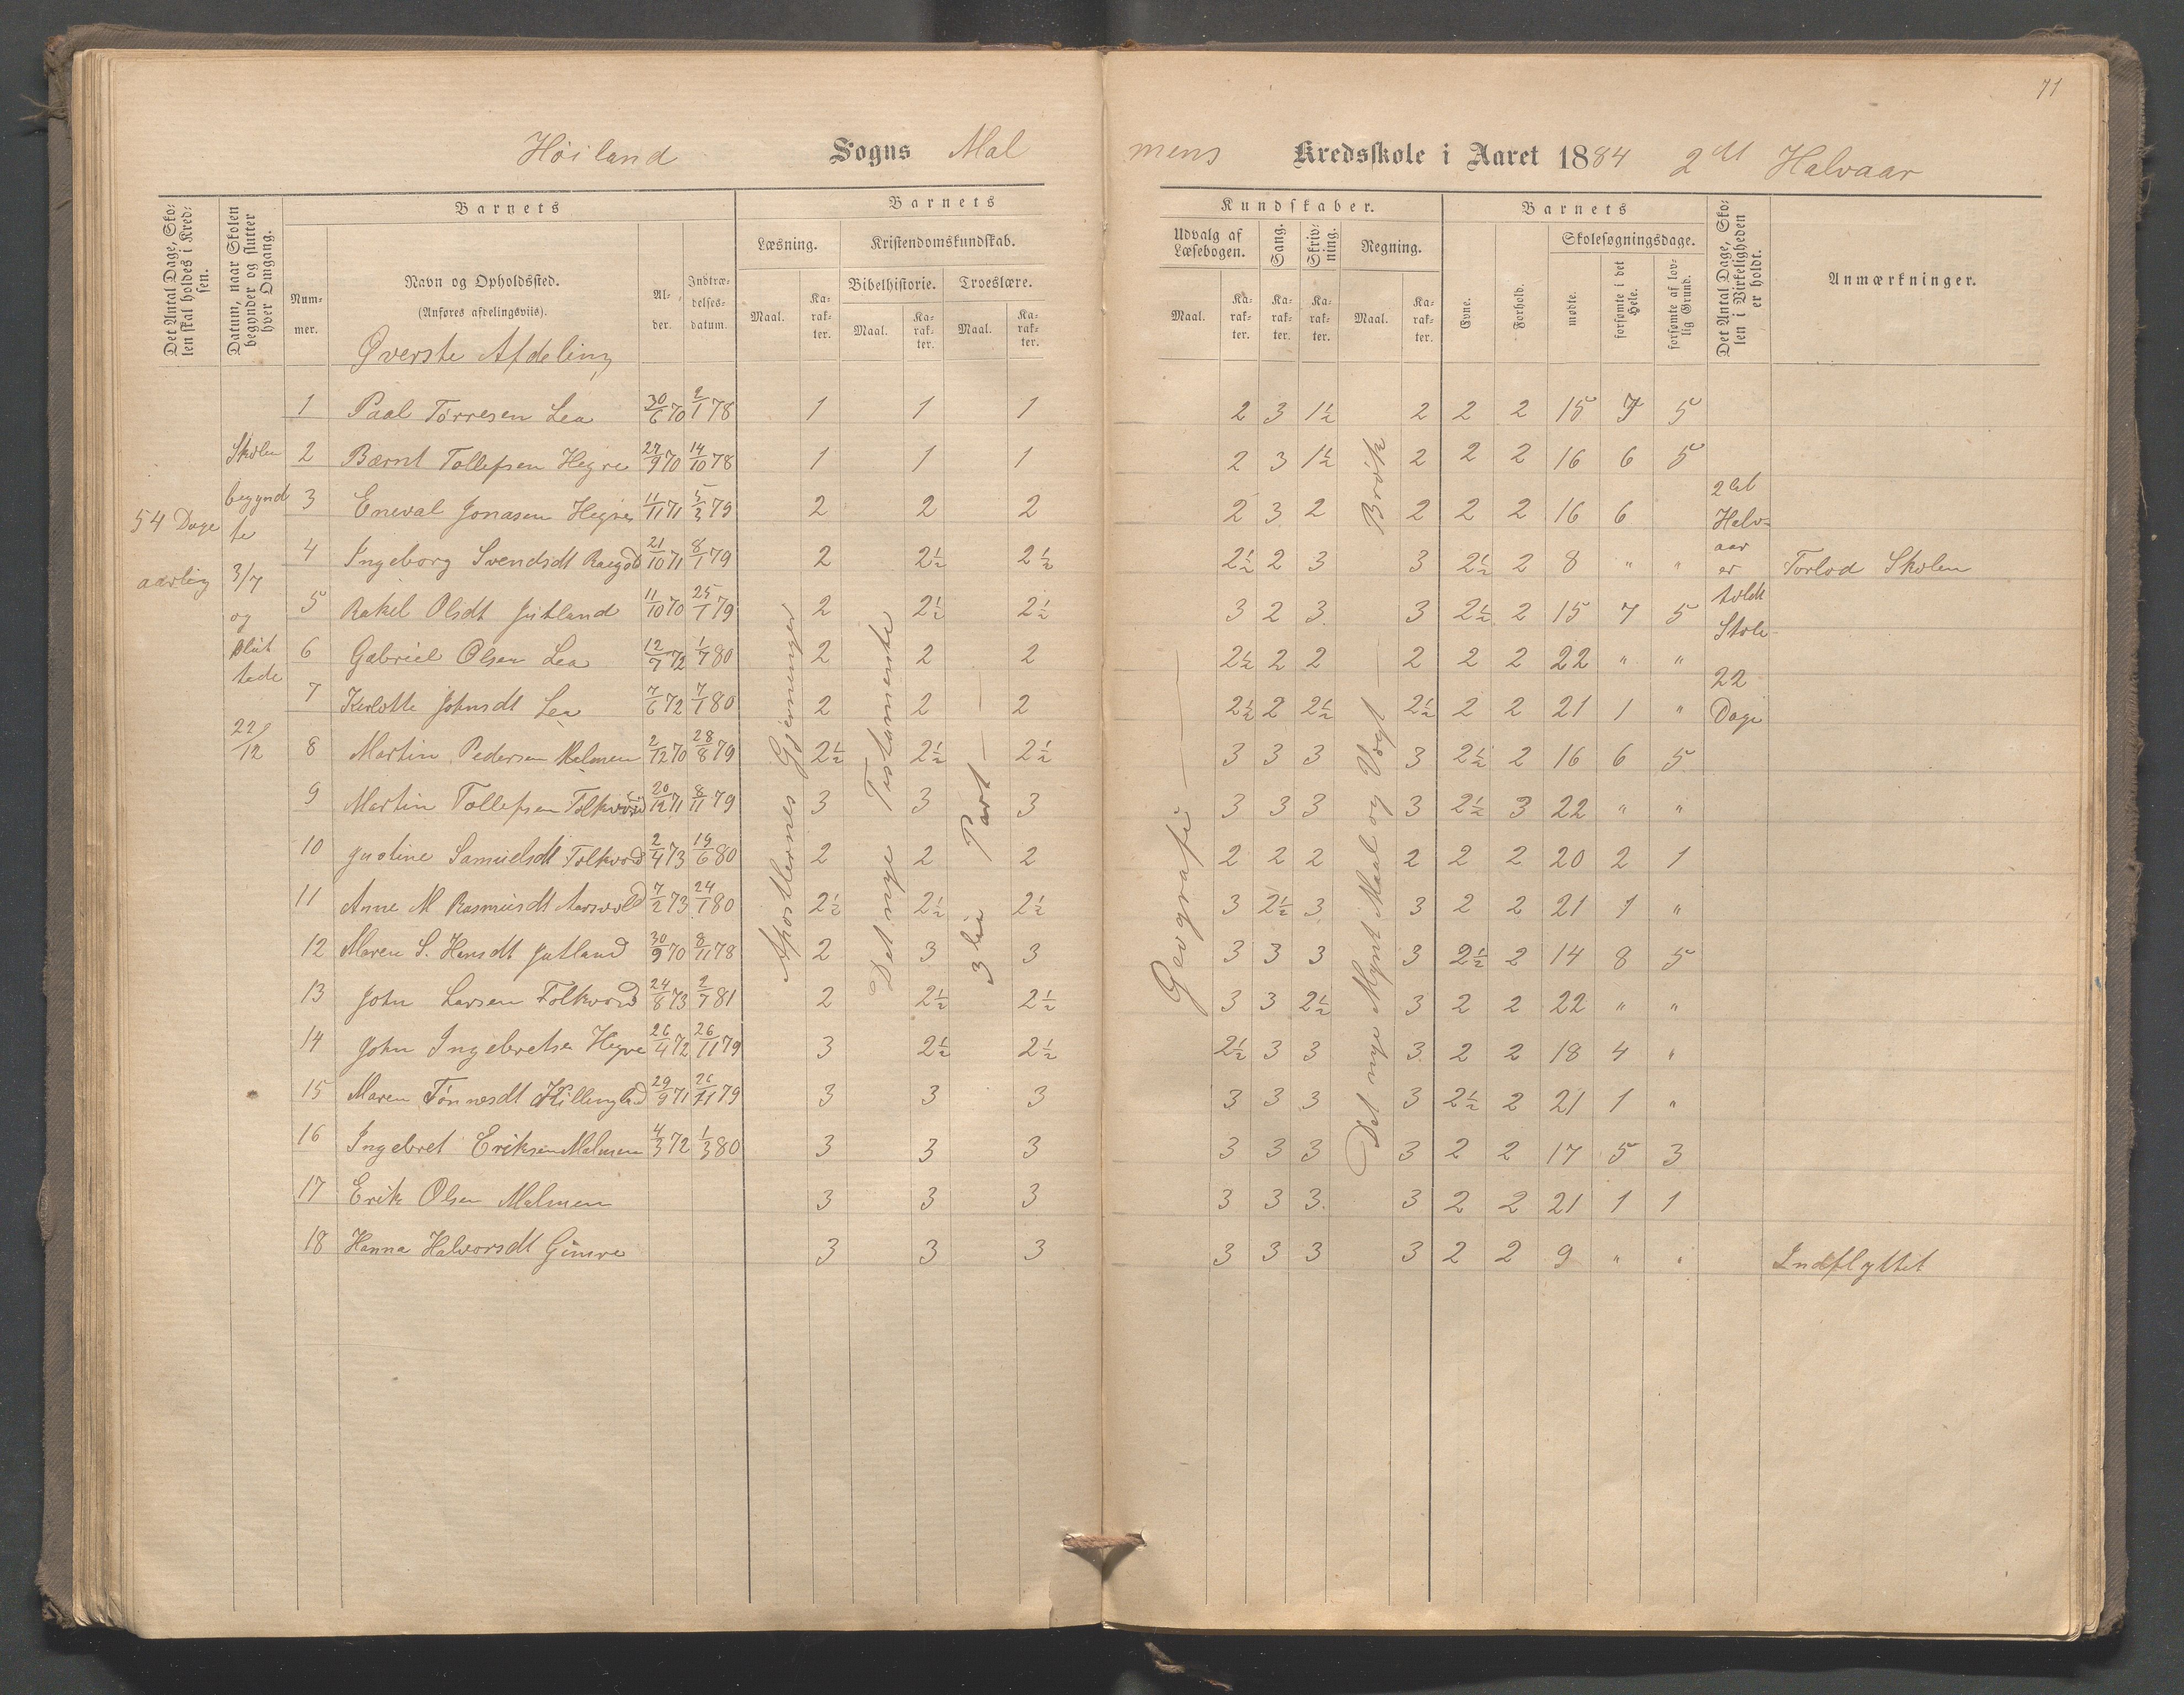 71
Höiland Sogns Malmens Kredsskole i Aaret 1884 2det Halvaar
Det Antal Dage, Skolen skal holdes i Kredsen.
Datum, naar Skolen begynder og slutter hver Omgang.
Barnets
Nummer.
Navn og Opholdssted.
(Anføres afdelingsviis).
Øverste Afdeling
Alder.
Indtrædelsesdatum.
Barnets Kundskaber.
Læsning. Maal. Karakter.
Kristendomskundskab.
Bibelhistorie. Maal. Karakter.
Troeslære. Maal. Karakter.
Udvalg af Læsebogen. Maal. Karakter.
Sang. Karakter.
Skrivning. Karakter.
Regning. Maal. Karakter.
Barnets
Evne.
Forhold.
Skolesøgningsdage.
mødte.
forsømte i det Hele.
forsømte af lovlig Grund.
Det Antal Dage, Skolen i Virkeligheden er holdt.
Anmærkninger.
54 Dage
aarlig
Skolen
begynd
te
3/7
og
slut
tede
22/12
Apostlernes Gjerninger
Det nye Testamente
3 die Part
Geografi
Det nye Mynt Maal og Vægt — Brøk
2det
Halv-
aar
er
holdt
Skole
22
Dage
1 Paal Tørresen Lea 30/6 70 2/1 78 1 1 1 2 3 1½ 2 2 2 15 7 5
2 Bærnt Tollefsen Hegre 27/9 70 14/10 78 1 1 1 2 3 1½ 2 2 2 16 6 5
3 Eneval Jonasen Hegre 11/11 71 5/3 79 2 2 2 2 3 2 2 2 2 16 6
4 Ingeborg Svendsdt 21/10 71 8/1 79 2 2½ 2½ 2½ 2 3 3 2½ 2 8 " " Forlod Skolen
5 Rakel Olsdt Jutland 11/10 70 25/1 79 2 2½ 2½ 3 2 3 3 2½ 2 15 7 5
6 Gabriel Olsen Lea 12/7 72 1/7 80 2 2 2 2½ 2 2 2 2 2 22 " "
7 Johnsdt Lea 7/6 72 7/1 80 2 2 2 2½ 2 2½ 2½ 2 2 21 1 "
8 Martin Pedersen Malmen 2/12 70 28/8 79 2½ 2½ 2½ 3 3 3 3 2½ 2 16 6 5
9 Martin Tollefsen Folkvord 20/12 71 8/11 79 3 3 3 3 3 3 3 2½ 3 22 " "
10 Justine Samuelsdt Folkvord 2/4 73 19/6 80 2 2 2 2 2 2 2 2 2 20 2 1
11 Anne M Rasmusdt Aarsvold 7/2 73 24/1 80 2½ 2½ 2½ 3 2½ 3 3 2 2 21 1 "
12 Maren S. Hansdt Jutland 30/9 70 8/11 78 2 3 3 3 3 3 3 2½ 2 14 8 5
13 John Larsen Folkvord 24/8 73 2/7 81 2 2½ 2½ 3 3 2½ 3 2 2 22 " "
14 John Ingebretsen Hegre 26/4 72 26/11 79 3 2½ 2½ 2½ 3 3 3 2 2 18 4 "
15 Maren Tönnesdt Killingland 29/9 71 26/11 79 3 3 3 3 3 3 3 2½ 2 21 1 "
16 Ingebret Eriksen Malmen 4/3 72 1/3 80 3 3 3 3 3 3 3 2 2 17 5 3
17 Erik Olsen Malmen 3 3 3 3 3 3 3 2 2 21 1 1
18 Hanna Halvorsdt Gimre 3 3 3 3 3 3 3 2 2 9 " " Indflyttet